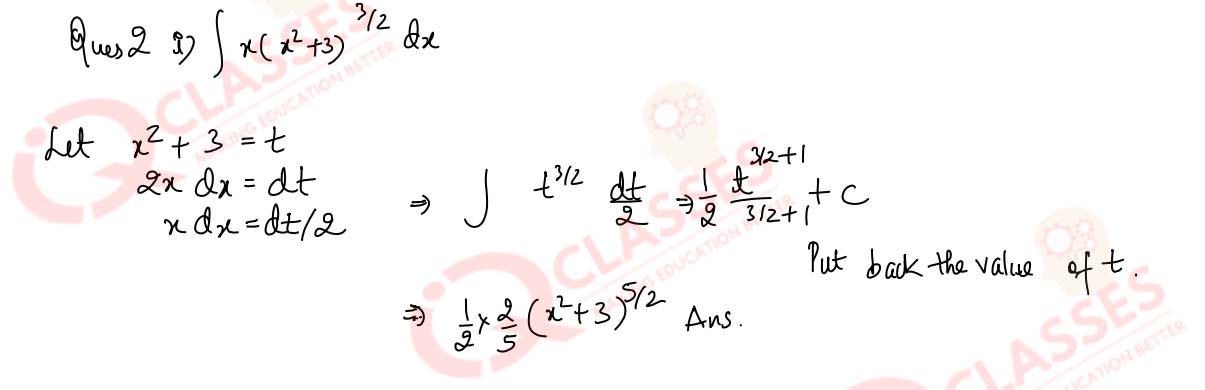 Ques 2 i) ∫ x(x²+3)^3/2 dx
Let x² + 3 = t
2x dx = dt
x dx = dt/2 ⇒ ∫ t^3/2 dt/2 ⇒ 1/2 t^3/2+1 / 3/2+1 + c
Put back the value of t.
⇒ 1/2 × 2/5 (x²+3)^5/2 Ans.
CLASSES
MAKING EDUCATION BETTER
CLASSES
EDUCATION BETTER
CLASSES
EDUCATION BETTER